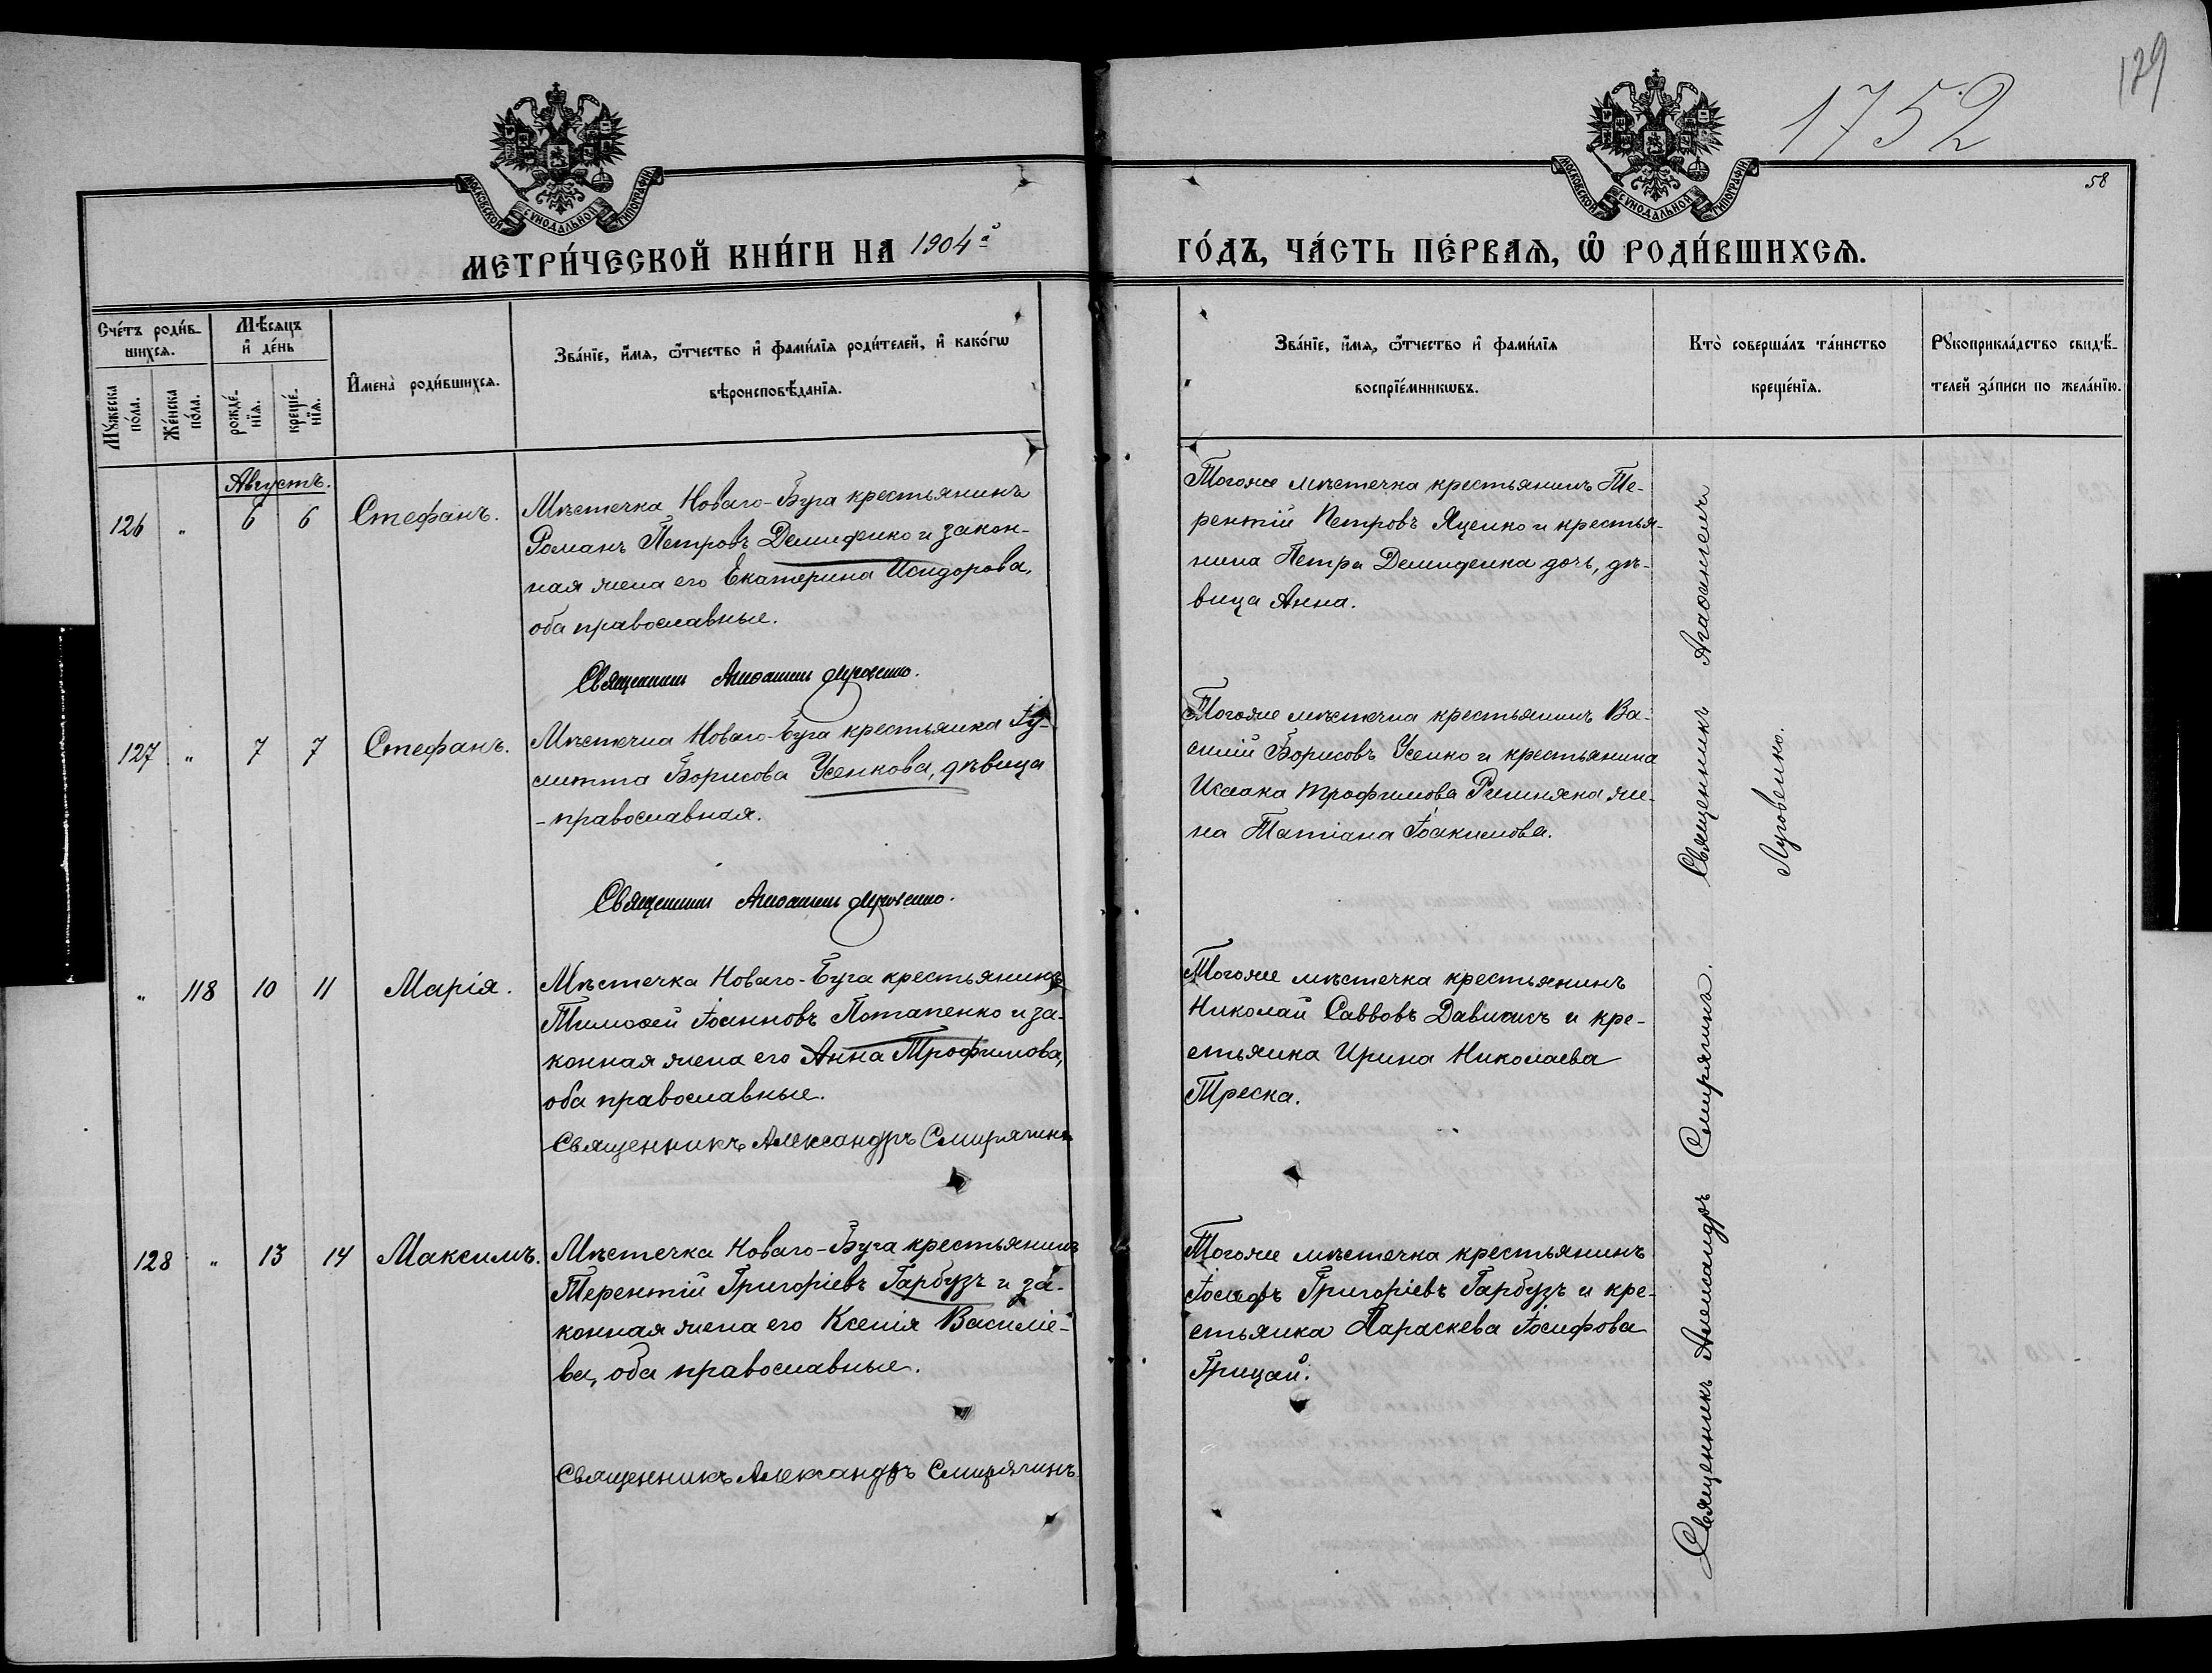 129
1752
58
МОСКОВСКОЙ СѴНОДАЛЬНОЙ ТИПОГРАФІИ
МОСКОВСКОЙ СѴНОДАЛЬНОЙ ТИПОГРАФІИ
МЕТРИ́ЧЕСКОЙ КНИ́ГИ НА 1904й
ГО́ДЪ, ЧА́СТЬ ПЕ́РВАѦ, Ѽ РОДИ́ВШИХСѦ.
Сче́тъ роди́в-
шихсѧ.
Мꙋ́жеска
по́ла.
Же́нска
по́ла.
Мѣ́сѧцъ
и҆ де́нь
рожде́-
нїѧ.
креще́-
нїѧ.
И҆мена̀ роди́вшихсѧ.
Зва́нїе, и҆́мѧ, ѻ҆́тчество и҆ фами́лїѧ роди́телей, и҆ како́гѡ
вѣроисповѣ́данїѧ.
Зва́нїе, и҆́мѧ, ѻ҆́тчество и҆ фами́лїѧ
воспрїе́мникѡвъ.
Кто̀ соверша́лъ та́инство
креще́нїѧ.
Рꙋкоприкла́дство свидѣ́-
телей за́писи по жела́нїю.
Августъ.
126 " 6 6 Стефанъ.
Мѣстечка Новаго-Буга крестьянинъ
Романъ Петровъ Демиденко и закон-
ная жена его Екатерина Исидорова,
оба православные.
Священникъ Агаѳангелъ Луговенко.
Тогоже мѣстечка крестьянинъ Те-
рентій Петровъ Яценко и крестья-
нина Петра Демиденка дочь, дѣ-
вица Анна.
127 " 7 7 Стефанъ.
Мѣстечка Новаго-Буга крестьянка Іу-
литта Борисова Усенкова, дѣвица
-православная.
Священникъ Агаѳангелъ Луговенко.
Тогоже мѣстечка крестьянинъ Ва-
силій Борисовъ Усенко и крестьянина
Исаака Трофимова жe-
на Татіана Іоакимова.
Священникъ Агаѳангелъ
Луговенко.
" 118 10 11 Марія.
Мѣстечка Новаго-Буга крестьянинъ
Тимоѳей Іоанновъ Потапенко и за-
конная жена его Анна Трофимова,
оба православные.
Священникъ Александръ Смирягинъ
Тогоже мѣстечка крестьянинъ
Николай Саввовъ и кре-
стьянка Ирина Николаева
Треска.
128 " 13 14 Максимъ.
Мѣстечка Новаго-Буга крестьянинъ
Терентій Григоріевъ Гарбузъ и за-
конная жена его Ксенія Василіе-
ва, оба православные.
Священникъ Александръ Смирягинъ
Тогоже мѣстечка крестьянинъ
Іосифъ Григоріевъ Гарбузъ и кре-
стьянка Параскева Іосифова
Грицай.
Священникъ Александръ Смирягинъ.